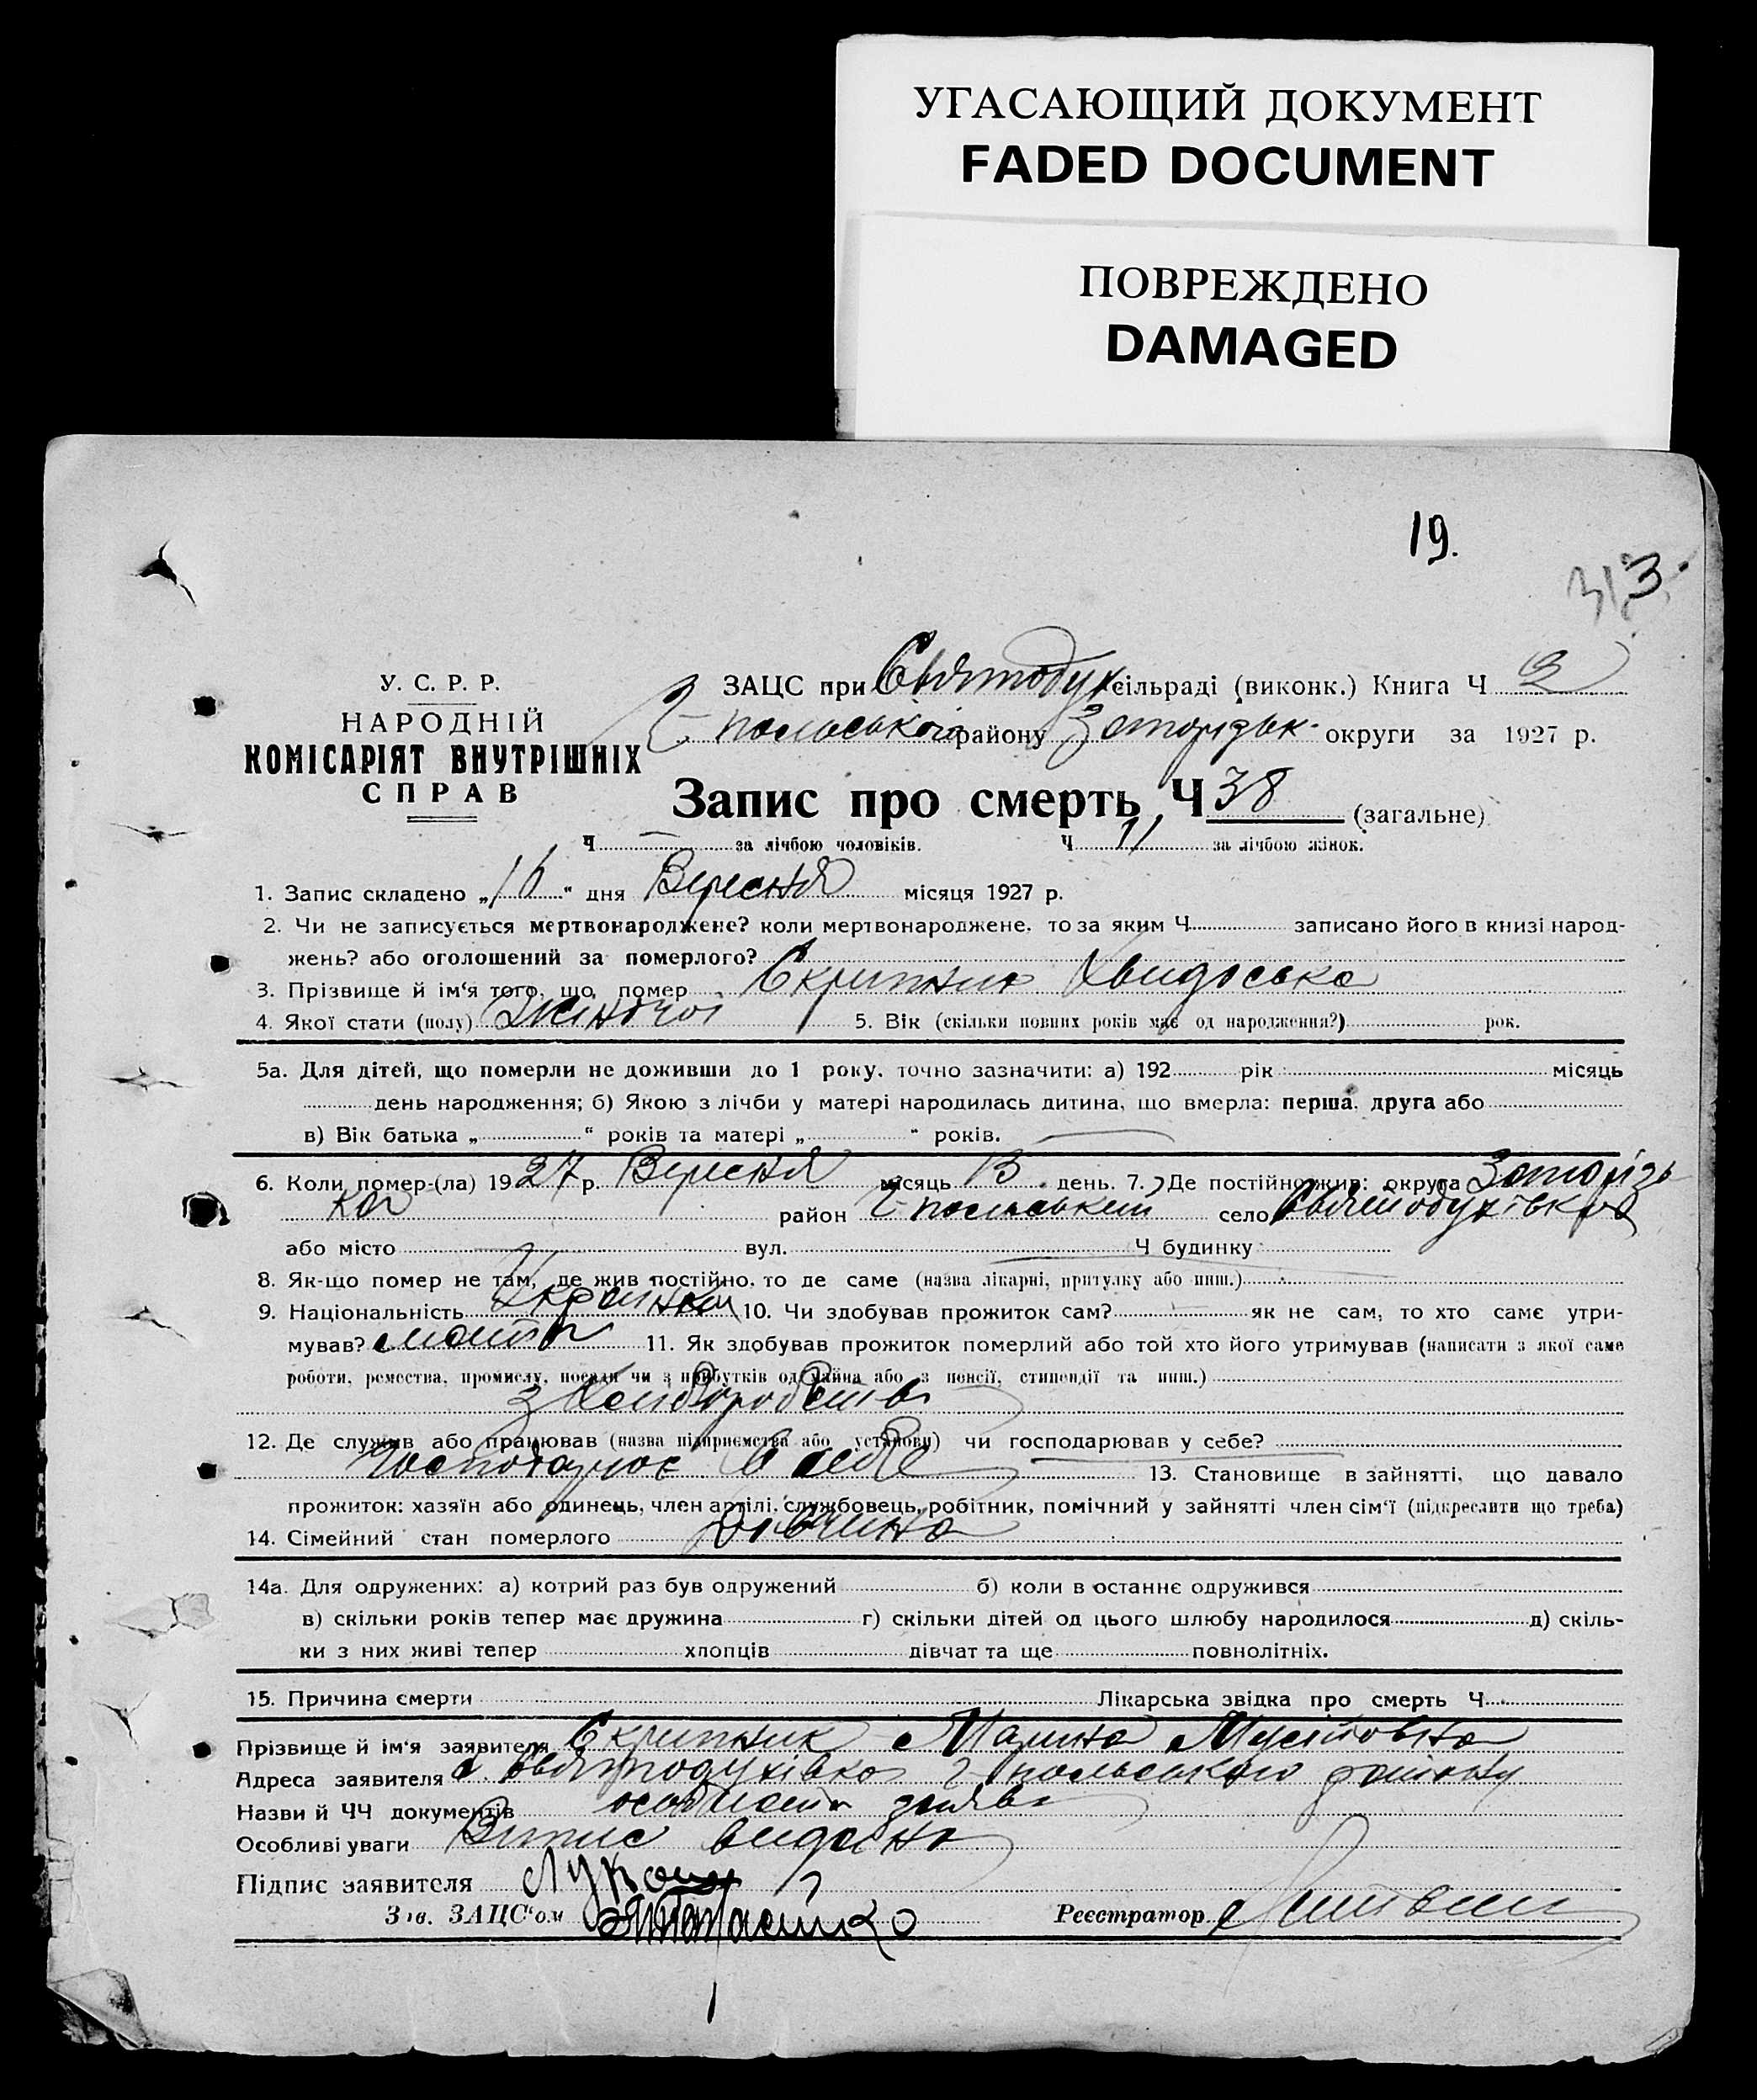 УГАСАЮЩИЙ ДОКУМЕНТ
FADED DOCUMENT
ПОВРЕЖДЕНО
DAMAGED
19.
313.
У. С. Р. Р.
НАРОДНІЙ
КОМІСАРІЯТ ВНУТРІШНІХ
СПРАВ
ЗАЦС при Святодух сільраді (виконк.) Книга Ч 3
польського району округи за 1927 р.
Запис про смерть Ч 38 (загальне)
Ч — за лічбою чоловіків. Ч 11 за лічбою жінок.
1. Запис складено „16“ дня Вересня місяця 1927 р.
2. Чи не записується мертвонароджене? коли мертвонароджене, то за яким Ч записано його в книзі народ-
жень? або оголошений за померлого?
3. Прізвище й ім'я того, що помер Скрипник Хвидоська
4. Якої стати (полу) Жіночої 5. Вік (скільки повних років має од народження?) рок.
5а. Для дітей, що померли не доживши до 1 року, точно зазначити: а) 192 рік місяць
день народження; б) Якою з лічби у матері народилась дитина, що вмерла: перша, друга або
в) Вік батька „ “ років та матері „ “ років. —
6. Коли помер-(ла) 1927 р. Вересня місяць 13 день. 7. Де постійно жив: округа Запорізь
ка район Г-польський село Святодухівка
або місто вул. Ч будинку
8. Як-що помер не там, де жив постійно, то де саме (назва лікарні, притулку або инш.)
9. Національність Українка 10. Чи здобував прожиток сам? — як не сам, то хто саме утри-
мував? мати 11. Як здобував прожиток померлий або той хто його утримував (написати з якої саме
роботи, ремества, промислу, посади чи з прибутків од майна або з пенсії, стипендії та инш.)
з Хліборобства
12. Де служив або працював (назва підприємства або установи) чи господарював у себе?
Господарює в себе 13. Становище в зайнятті, що давало
прожиток: хазяїн або одинець, член артілі, службовець, робітник, помічний у зайнятті член сім'ї (підкреслити що треба)
14. Сімейний стан померлого дівчина
14а. Для одружених: а) котрий раз був одружений б) коли в останнє одружився
в) скільки років тепер має дружина г) скільки дітей од цього шлюбу народилося д) скіль-
ки з них живі тепер хлопців дівчат та ще повнолітніх.
15. Причина смерти Лікарська звідка про смерть Ч
Прізвище й ім'я заявителя Скрипник Марина Мусіївна
Адреса заявителя с. Святодухівка Г-польського району
Назви й ЧЧ документів особиста заява
Особливі уваги Випис видано
Підпис заявителя
Зав. ЗАЦС'ом Реєстратор